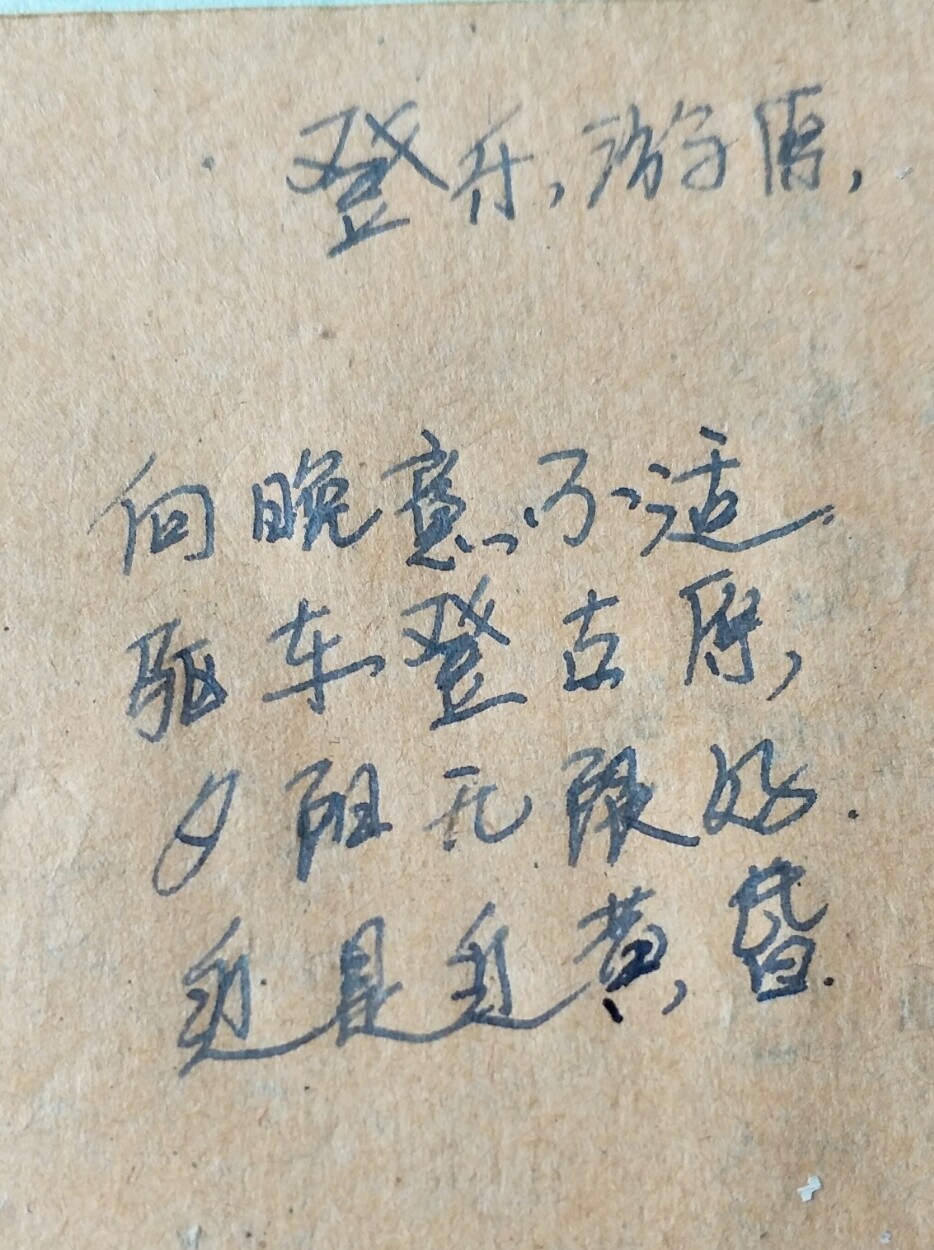 登乐游原，
向晚意不适
驱车登古原，
夕阳无限好.
近是近黄昏.